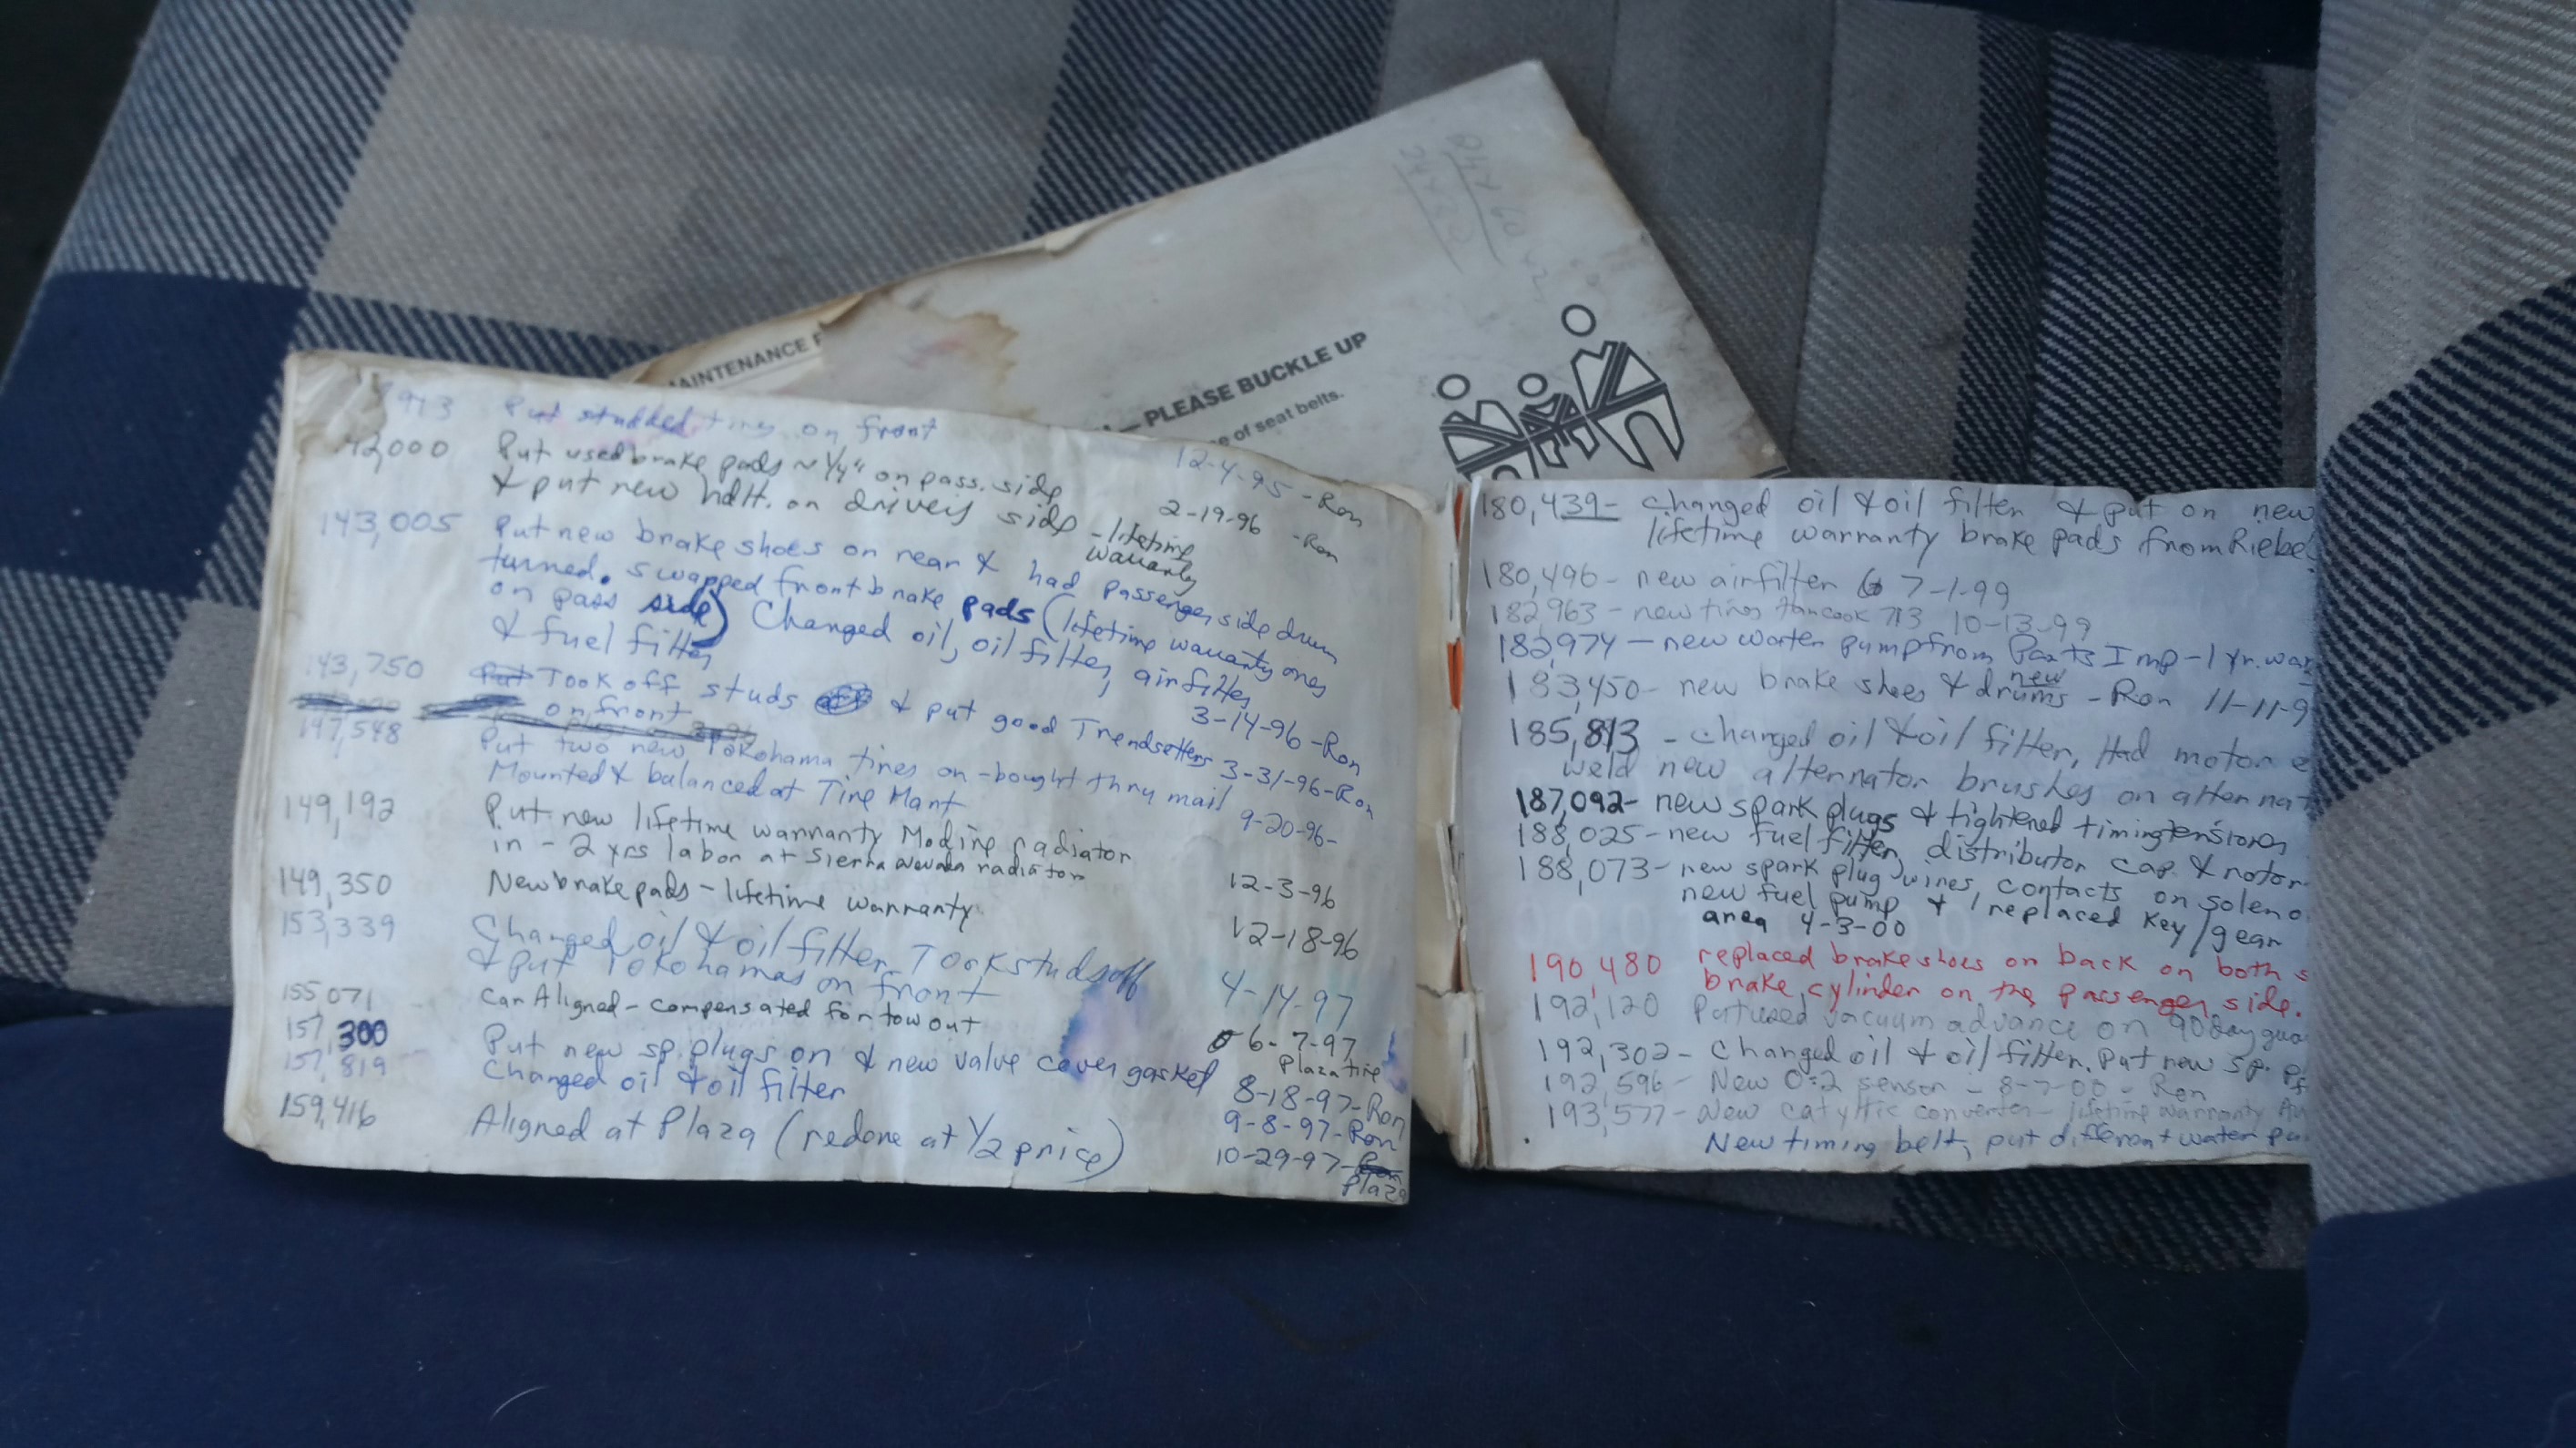 MAINTENANCE
— PLEASE BUCKLE UP
of seat belts.
913 Put studded tires on front 12-4-95 -Ron
42,000 Put used brake pads ~ 1/4" on pass. side 2-19-96 -Ron
& put new hdlt. on drivers side - lifetime
warranty
143,005 Put new brake shoes on rear & had passenger side drum
turned. swapped front brake pads (lifetime warranty ones
on pass side) Changed oil, oil filter, airfilter,
& fuel filter 3-14-96 -Ron
143,750 Took off studs & put good Trendsetters 3-31-96-Ron
on front
147,548 Put two new Yokohama tires on - bought thru mail 9-20-96-
Mounted & balanced at Tire Mart
149,192 Put new lifetime warranty Modine radiator
in - 2 yrs labor at Sierra Nevada radiator 12-3-96
149,350 New brake pads - lifetime warranty 12-18-96
153,339 Changed oil & oil filter Took studs off
& put Yokohamas on front 4-14-97
155,071 Car Aligned - compensated for tow out 6-7-97
Plaza tire
157,300 Put new sp. plugs on & new valve cover gasket 8-18-97-Ron
157,819 Changed oil & oil filter 9-8-97-Ron
159,416 Aligned at Plaza (redone at 1/2 price) 10-29-97-
Plaza
180,439- changed oil & oil filter & put on new
lifetime warranty brake pads from Riebe
180,496- new airfilter 7-1-99
182,963 - new tires Hancook 713 10-13-99
182,974 - new water pump from Parts Imp - 1 yr. war
183,450- new brake shoes & new drums - Ron 11-11-9
185,813 - changed oil & oil filter, Had motor
weld new alternator brushes on alternat
187,092- new spark plugs & tightened timing tension
188,025- new fuel filter, distributor cap & rotor
188,073- new spark plug wires, contacts on soleno
new fuel pump & replaced key/gear
area 4-3-00
190,480 replaced brake shoes on back on both s
brake cylinder on the passenger side.
192,120 Put used vacuum advance on 90 day gua
192,302- Changed oil & oil filter. Put new sp. p
192,596- New O=2 sensor - 8-7-00 - Ron
193,577- New catyltic converter - lifetime warranty
New timing belt, put different water pu